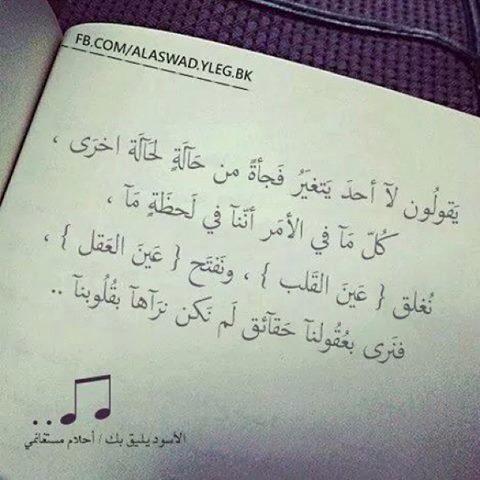 FB.COM/ALASWAD.YLEG.BK
يَقولُون لآ أحدَ يَتغيَرُ فَجأةً من حَآلَةٍ لحَآلَة اخرَى ،
كُلّ مَآ في الأمَر أنّنآ في لَحظَةٍ مَآ ،
نُغلق { عَينَ القَلب } ، ونَفتَح { عَينَ العَقل } ،
فنَرى بعُقُولنآ حَقآئق لَم نَكن نرَآهآ بقُلُوبنآ ..
الأسود يليق بك / أحلام مستغانمي